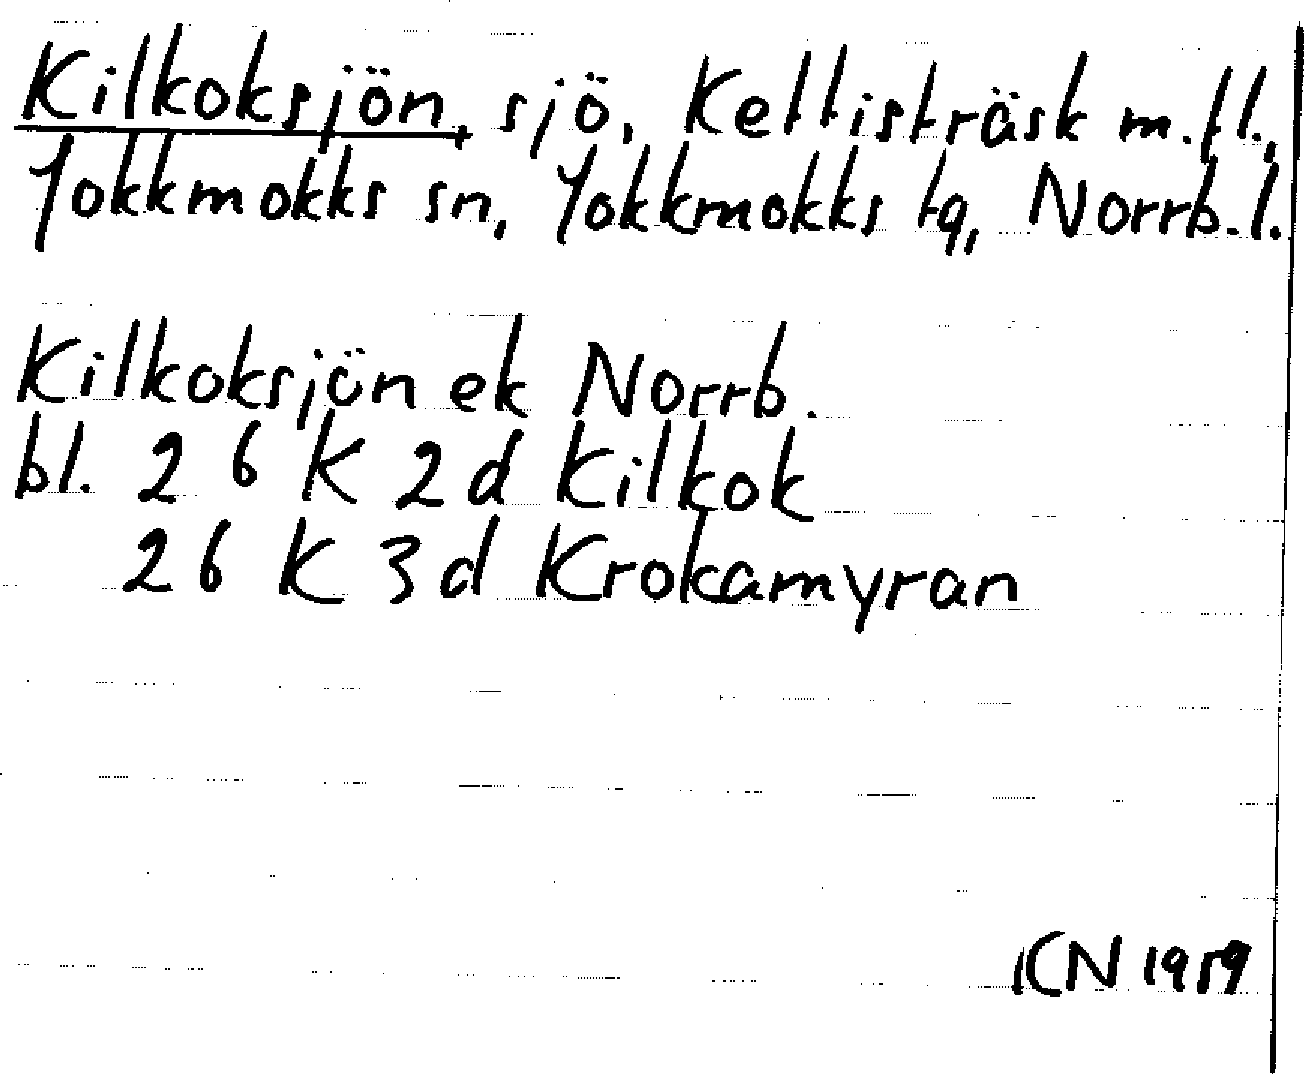 Kilkoksjön, sjö, Kettisträsk m.fl.,
Jokkmokks sn, Jokkmokks tg, Norrb.l.
Kilkoksjön ek Norrb.
bl. 26 K 2d Kilkok
26 K 3d Krokamyran
KN 1959